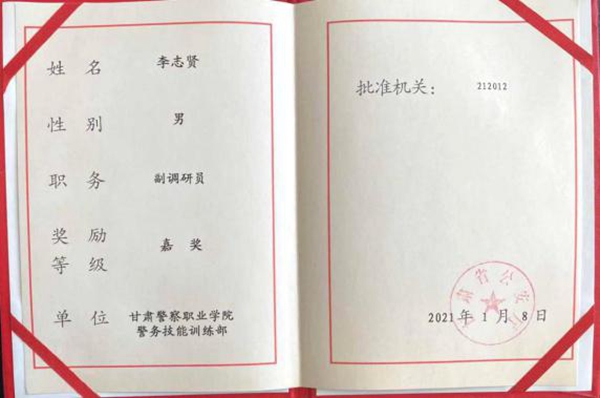 姓名 李志贤
性别 男
职务 副调研员
奖励
等级 嘉奖
单位 甘肃警察职业学院
警务技能训练部
批准机关： 212012
肃省公安
2021年1月8日